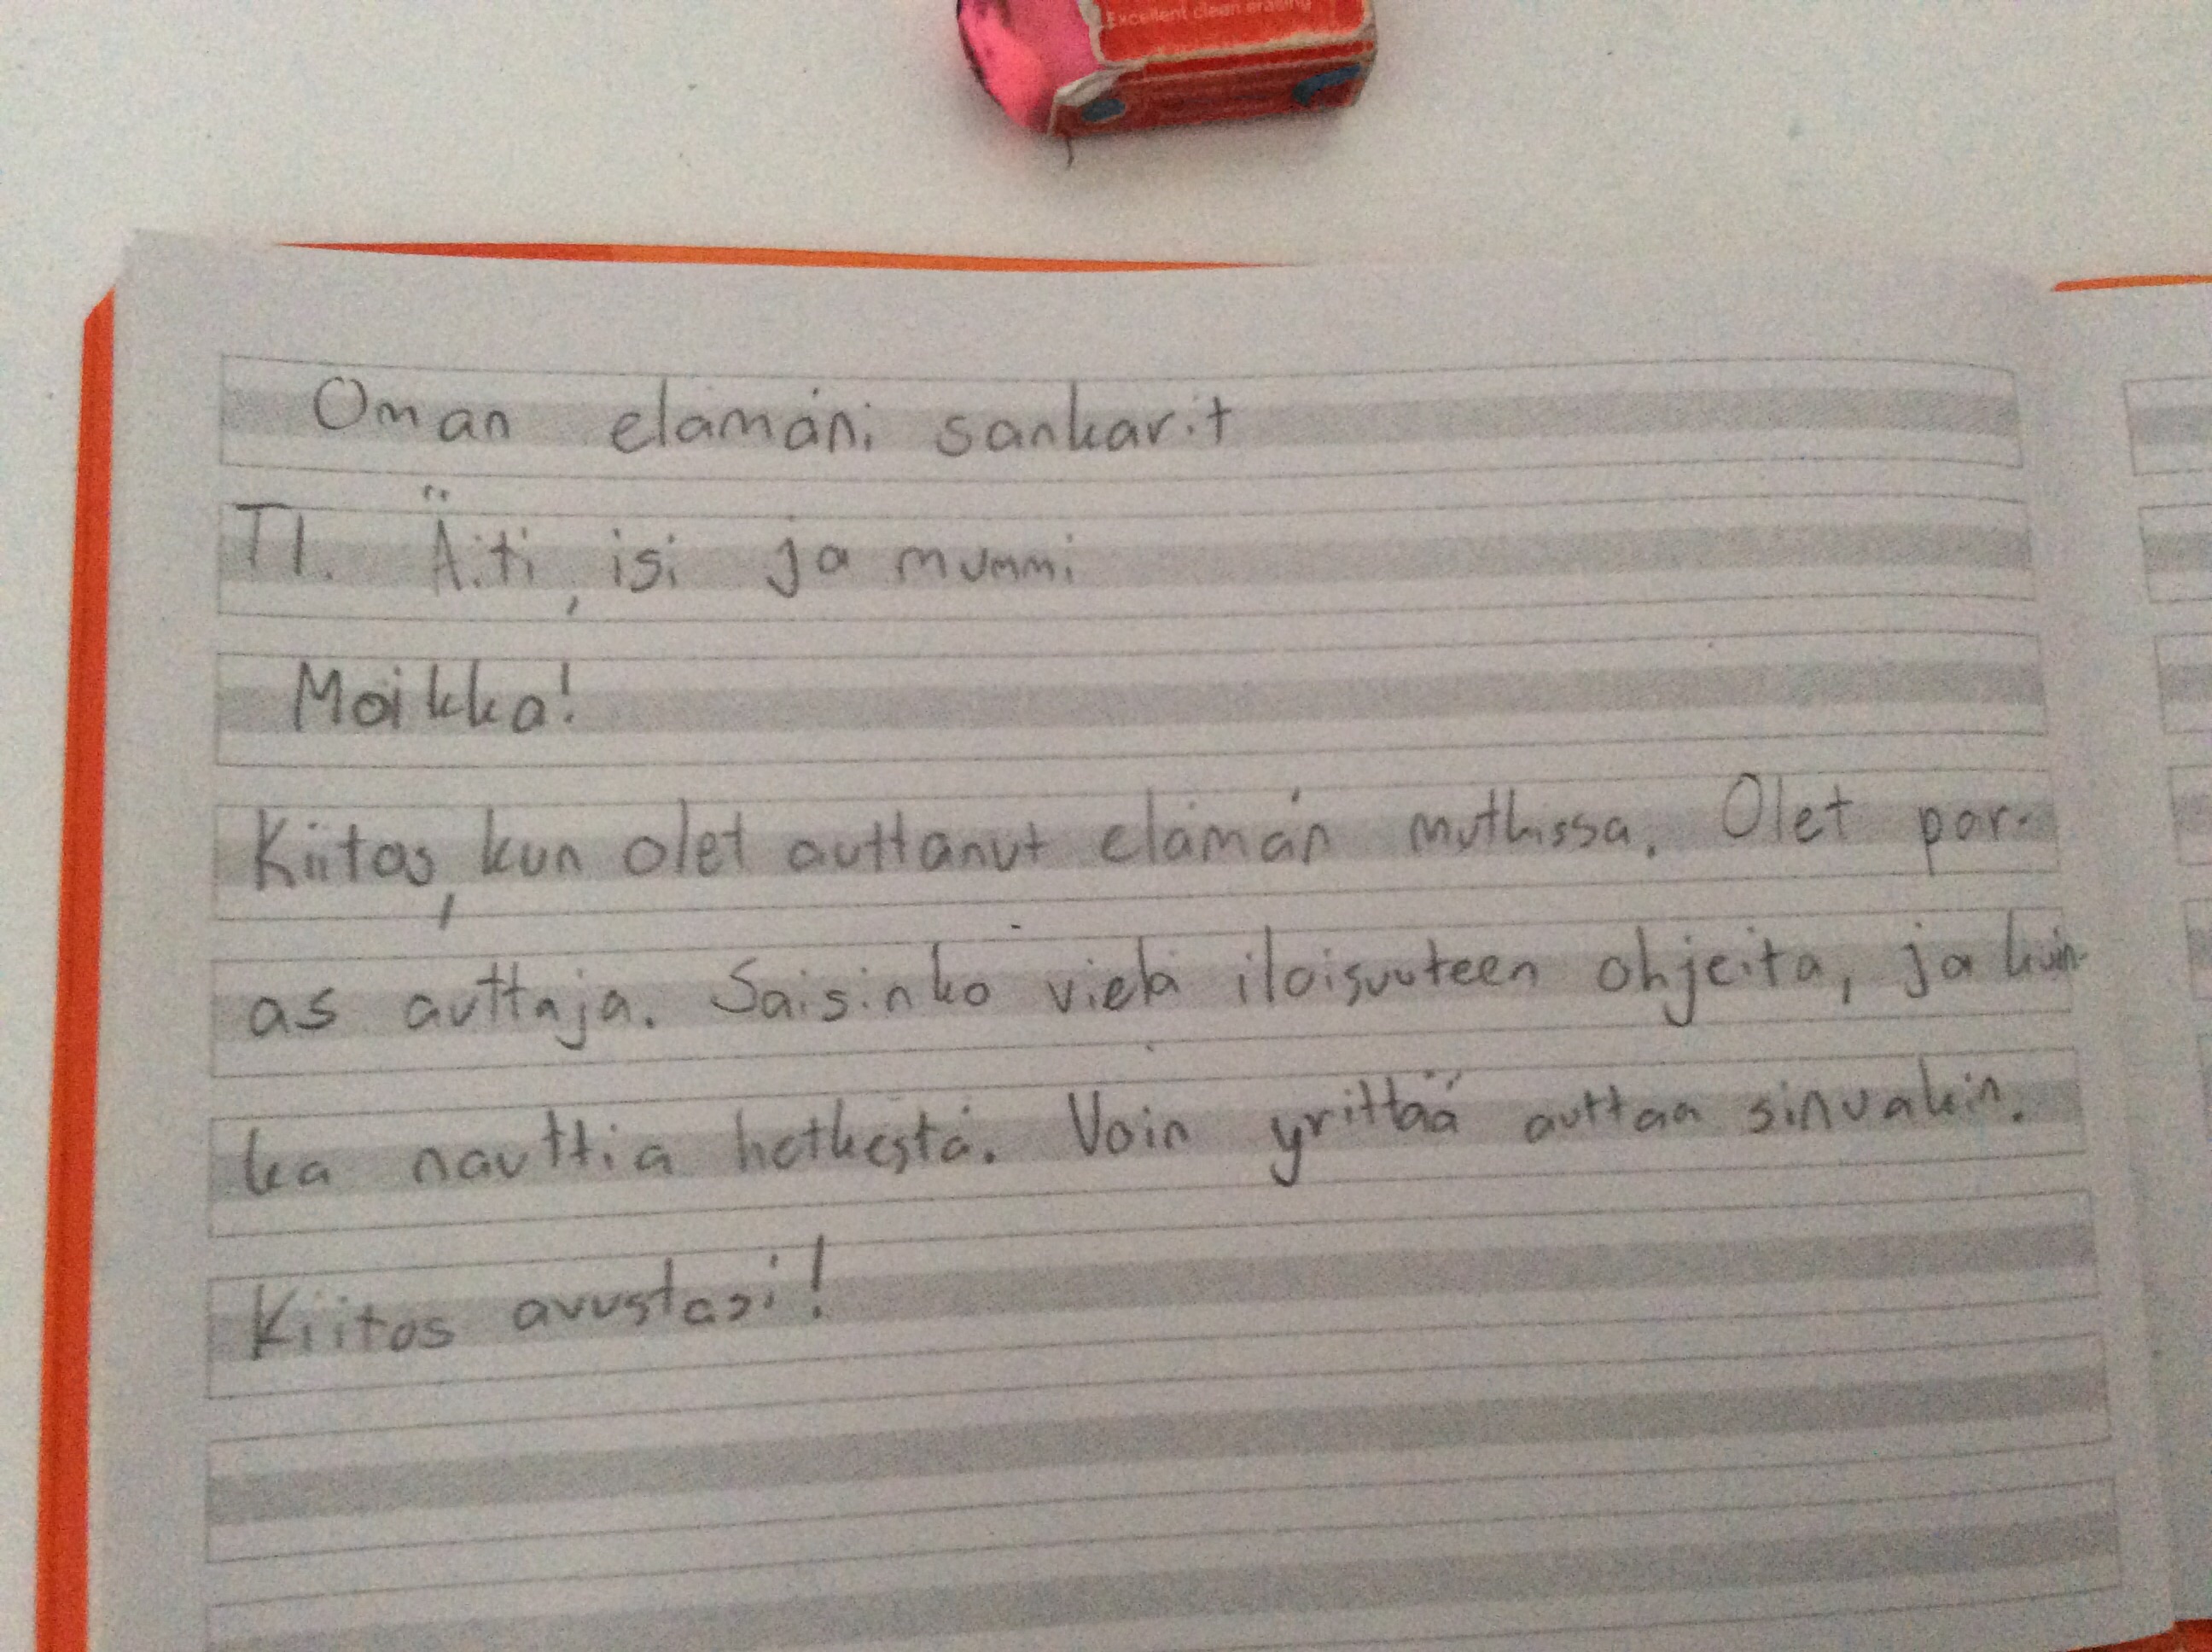 Excellent clean erasing
Oman elämäni sankarit
T1. Äiti, isi ja mummi
Moikka!
Kiitos, kun olet auttanut elämän mutkissa. Olet par-
as auttaja. Saisinko vielä iloisuuteen ohjeita, ja kuin-
ka nauttia hetkestä. Voin yrittää auttaa sinuakin.
Kiitos avustasi!